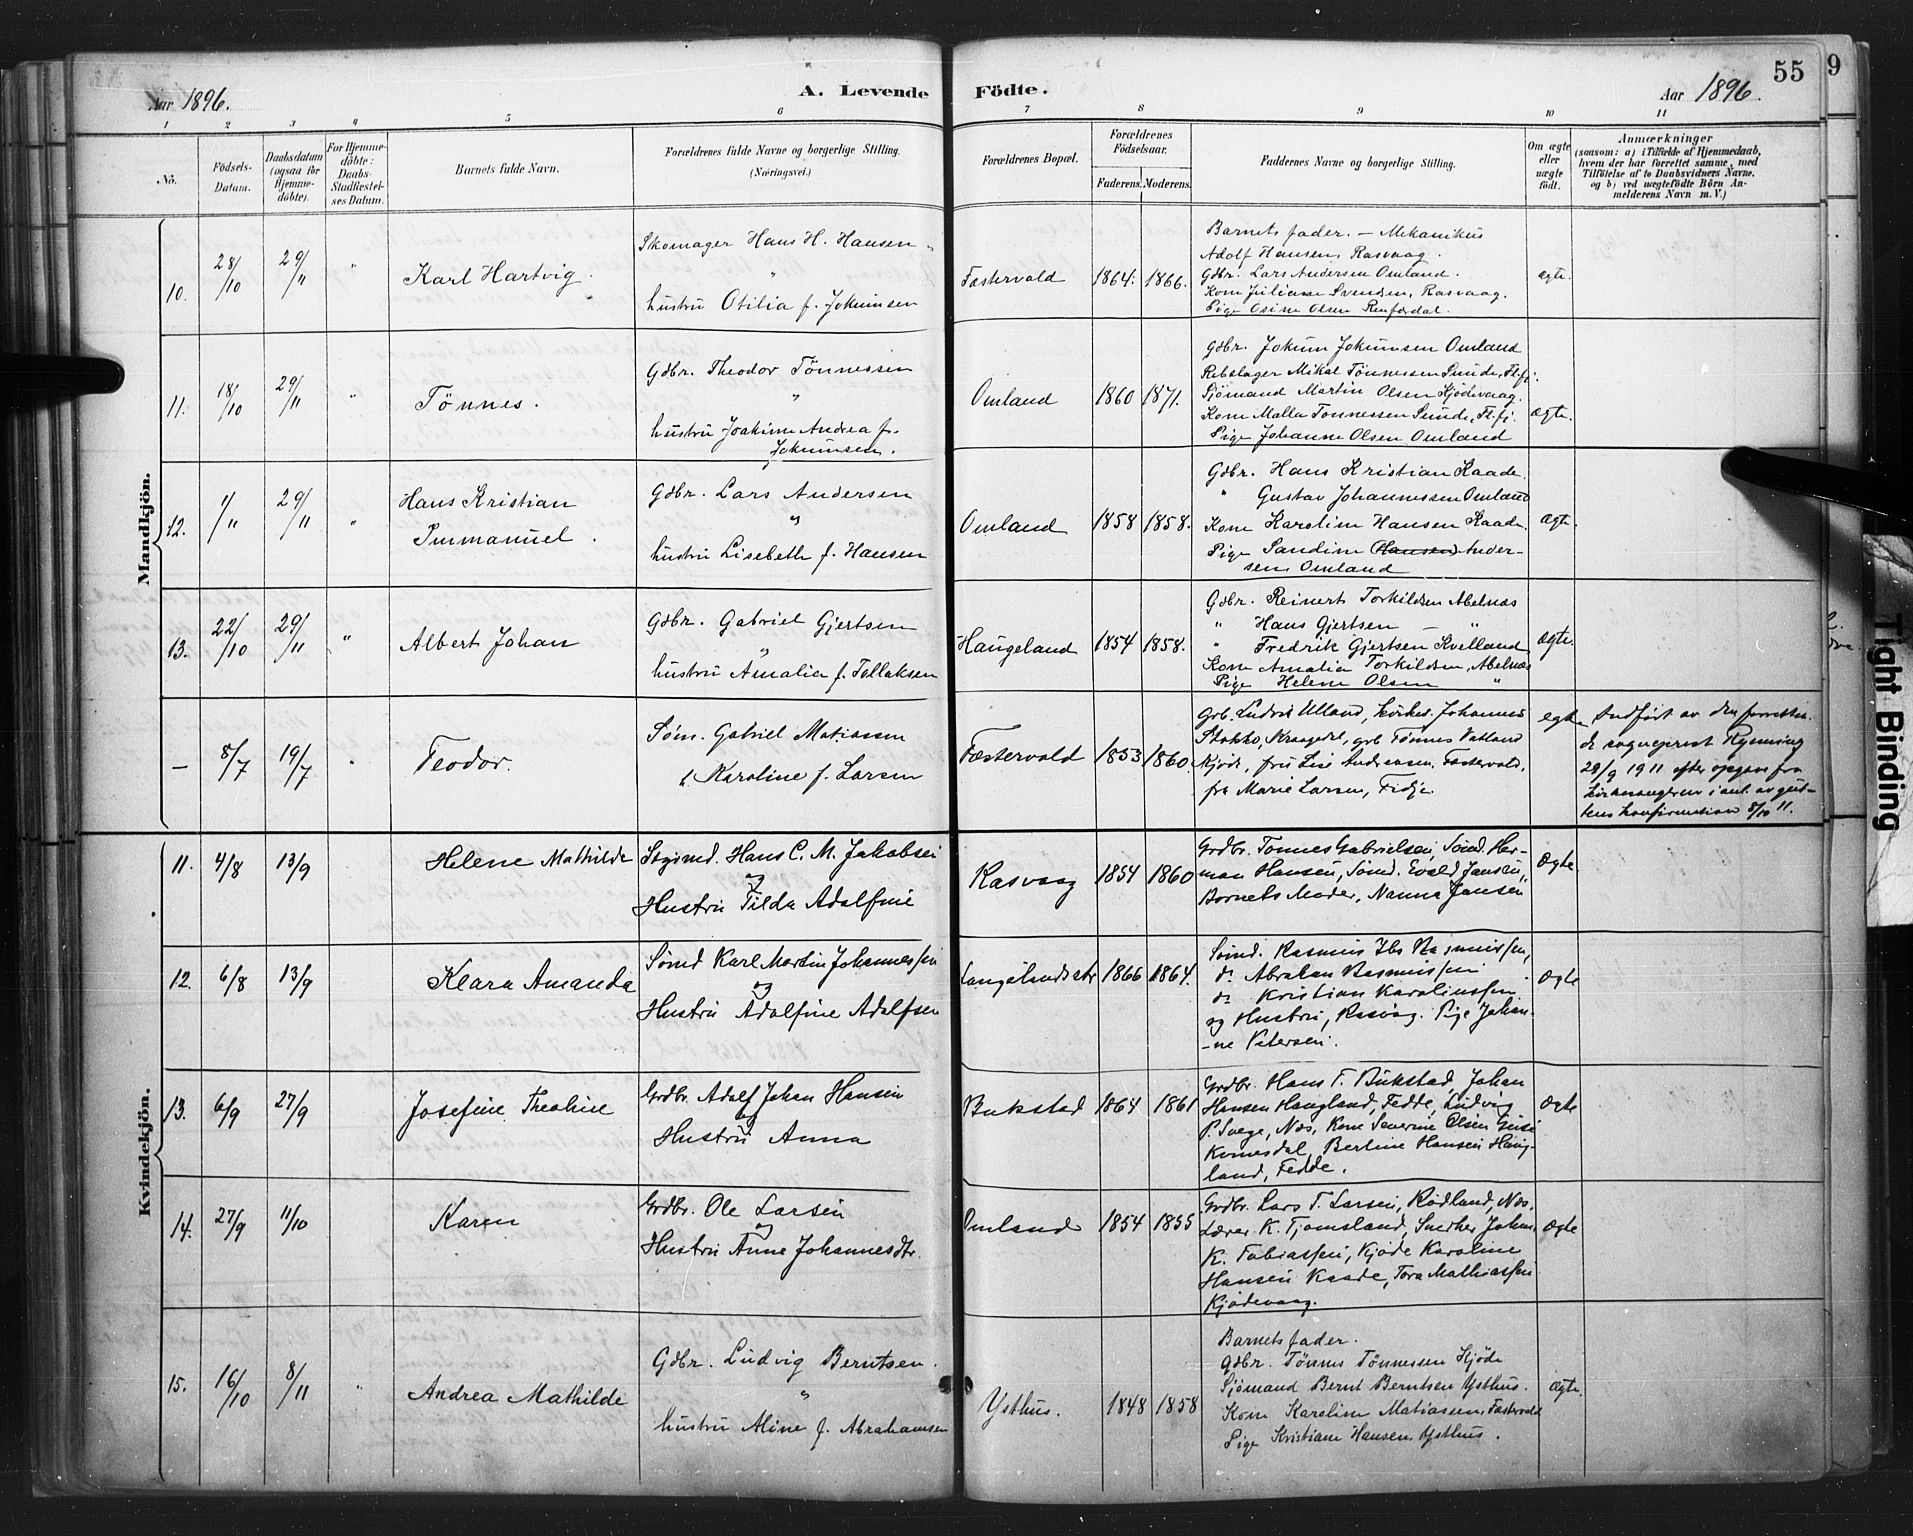 Aar 1896.
A. Levende Födte.
Aar 1896.
55
9
1 2 3 4 5 6 7 8 9 10 11
No.
Födsels-Datum.
Daabsdatum (ogsaa for Hjemme-döbte).
For Hjemme-döbte: Daabs-Stadfæstel-ses Datum.
Barnets fulde Navn.
Forældrenes fulde Navne og borgerlige Stilling. (Næringsvei.)
Forældrenes Bopæl.
Forældrenes Födselsaar.
Faderens.
Moderens.
Faddernes Navne og borgerlige Stilling.
Om ægte eller uægte födt.
Anmærkninger
(saasom: a) i Tilfælde af Hjemmedaab, hvem der har forrettet samme, med Tilföielse af to Daabsvidners Navne, og b) ved uægtefödte Börn An-melderens Navn m. V.)
Mandkjön.
10. 28/10 29/11 " Karl Hartvig.
Skomager Hans H. Hansen
"
hustru Otilia f. Jokumsen
Fæstervold 1864. 1866.
Barnets fader. — Mekanikus
Adolf Hansen, Rasvaag.
Gdbr. Lars Andersen Omland.
Kone Juliane Svendsen, Rasvaag.
Pige Osine Olsen
ægte.
11. 18/10 29/11 " Tönnes.
Gdbr. Theodor Tönnessen
"
hustru Joakime Andrea f.
Jokumsen.
Omland 1860 1871.
Gdbr. Jokum Jokumsen Omland
Rebslager Mikal Tönnessen Sunde, Fl.fj.
Sjömand Martin Olsen Kjödevaag.
Kone Malla Tönnessen Sunde, Fl.fj.
Pige Johanne Olsen Omland
ægte.
12. 1/11 29/11 " Hans Kristian
Immanuel.
Gdbr. Lars Andersen
og
hustru Lisebeth f. Hansen
Omland 1858 1858.
Gdbr. Hans Kristian Kaade.
" Gustav Johannessen Omland
Kone Karoline Hansen Kaade.
Pige Sandine Hansen Ander-
sen, Omland
ægte.
13. 22/10 29/11 " Albert Johan
Gdbr. Gabriel Gjertsen
"
hustru Amalia f. Tollaksen
Haugeland 1854 1858.
Gdbr. Reinert Torkildsen Abelnæs
" Hans Gjertsen — "
" Fredrik Gjertsen Kvelland
Kone Amalia Torkildsen, Abelnæs
Pige Helene Olsen "
ægte.
— 8/7 19/7 " Teodor.
Søm. Gabriel Matiassen
Karoline f. Larsen
Fæstervold 1853 1860.
Grb. Ludvik Ulland, Johannes
Stokko, Kraagedal, grb Tønnes Vatland
Kjøde, fru Lise Andreasen, Fæstervold,
fr Marie Larsen, Fidje.
egte
Indført av den forretten-
de sogneprest Rynning
28/9 1911 efter opgave fra
kirkesangeren i anl. av gut-
tens konfirmation 8/10 11.
Kvindekjön.
11. 4/8 13/9 Helene Mathilde
Hans C. M. Jakobsen
og
Hustru Tilda Adolfine
Rasvaag 1854 1860
Grdbr. Tønnes Gabrielsen, Sømd. Her-
man Hansen, Sømd. Evald Jansen,
Barnets Moder, Nanna Jansen
Ægte
12. 6/8 13/9 Klara Amanda
Sømd Karl Martin Johannessen
og
Hustru Adolfine Adolfsen
1866 1864.
Sømd. Rasmus Ibs Rasmussen,
do Abraham Rasmussen
do Kristian Karoliussen
og Hustru, Rasvåg. Pige Johan-
-ne Petersen.
Ægte
13. 6/9 27/9 Josefine Theoline
Grdbr. Adolf Johan Hansen
og
Hustru Anna
Bukstad 1864 1861
Grdbr. Hans T. Bukstad, Johan
Hansen Haugland, Fedde, Ludvig
P. Svege, Næs, Kone Severine Olsen
Kvinesdal, Bertine Hansen Haug-
land, Fedde.
Ægte
14. 27/9 11/10 Karen
Grdbr. Ole Larsen
og
Hustru Anne Johannesdtr.
Omland 1854 1855
Grdbr. Lars T. Larsen, Rødland, Næs,
Lærer K. Tjomsland, Snedker Johan
K. Tobiassen, Kjøde Karoline
Hansen Kaade, Tora Mathiassen
Kjødevaag.
Ægte
15. 16/10 8/11 " Andrea Mathilde
Gdbr. Ludvig Berntsen.
"
hustru Aline f. Abrahamsen
Ysthus. 1848 1858
Barnets fader.
Gdbr. Tönnes Tönnessen Kjöde
Sjömand Bernt Berntsen Ysthus.
Kone Karoline Matiassen, Fæstervold
Pige Kristiane Hansen, Ysthus.
ægte.
Tight Binding